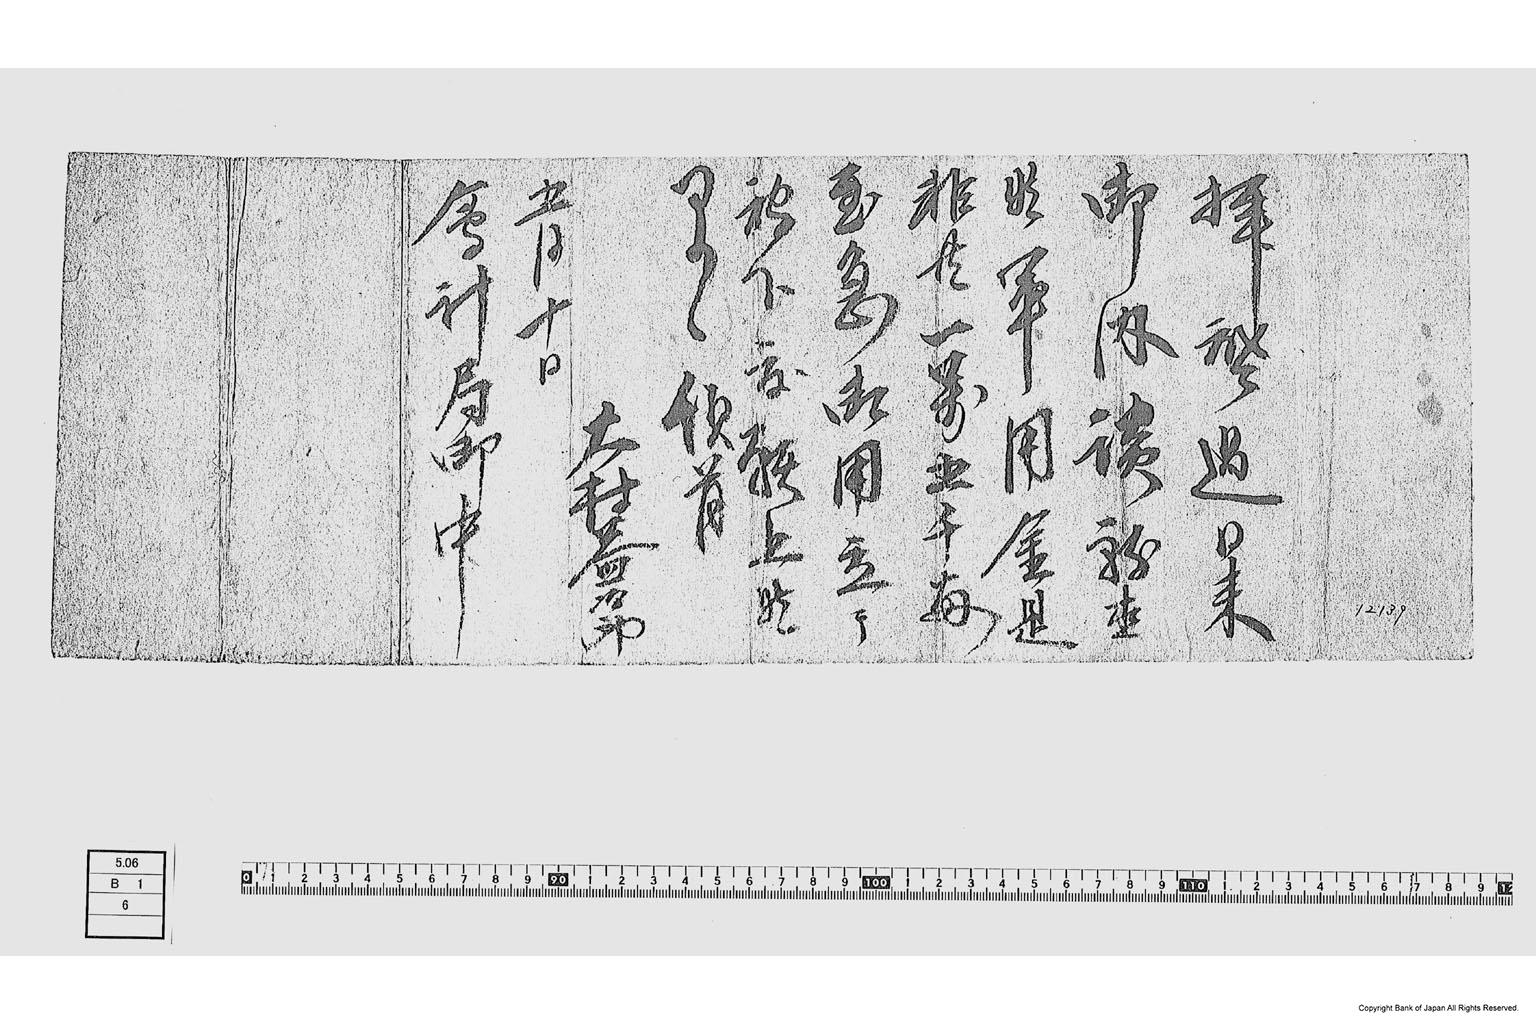 拝啓過日来
御内談致置
候軍用金是
非共一万五千両
至急御用立
被下度願上候
頓首
大村益四郎
五月十日
会計局御中
12139
5.06
B 1
6
0 1 2 3 4 5 6 7 8 9 90 1 2 3 4 5 6 7 8 9 100 1 2 3 4 5 6 7 8 9 110 1 2 3 4 5 6 7 8 9 12
Copyright Bank of Japan All Rights Reserved.